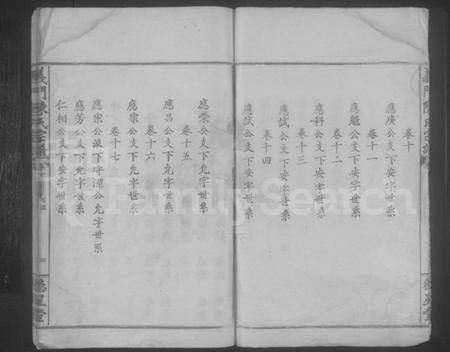 義門陳氏宗譜
卷十
應廣公支下安字世系
卷十一
應魁公支下安字世系
卷十二
應科公支下安字世系
卷十三
應試公支下安字世系
卷十四
應試公支下安字世系
德星堂
應榮公支下允字世系
卷十五
應昌公支下允字世系
卷十六
應宗公支下允字世系
卷十七
應宗公派下守津公允字世系
應芳公支下允字世系
仁相公支下安字世系
義門陳氏宗譜
德星堂
FamilySearch